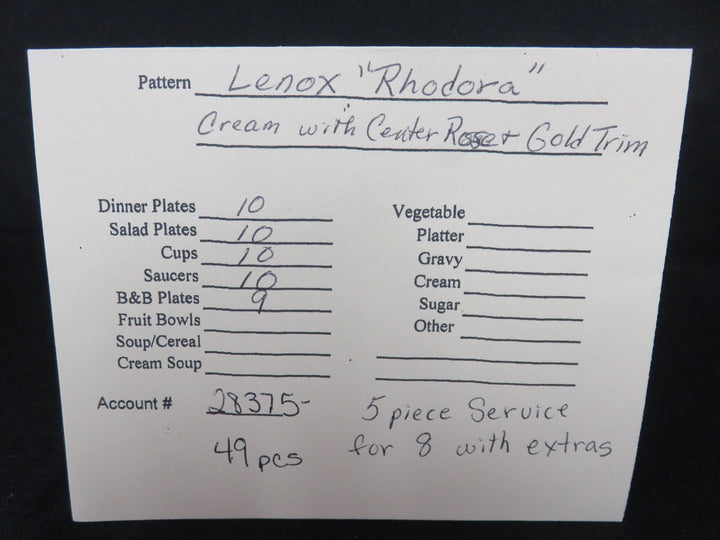 Pattern Lenox "Rhodora"
Cream with Center Rose + Gold Trim
Dinner Plates 10
Salad Plates 10
Cups 10
Saucers 10
B&B Plates 9
Fruit Bowls
Soup/Cereal
Cream Soup
Vegetable
Platter
Gravy
Cream
Sugar
Other
Account # 28375-
49 pcs
5 piece Service
for 8 with extras